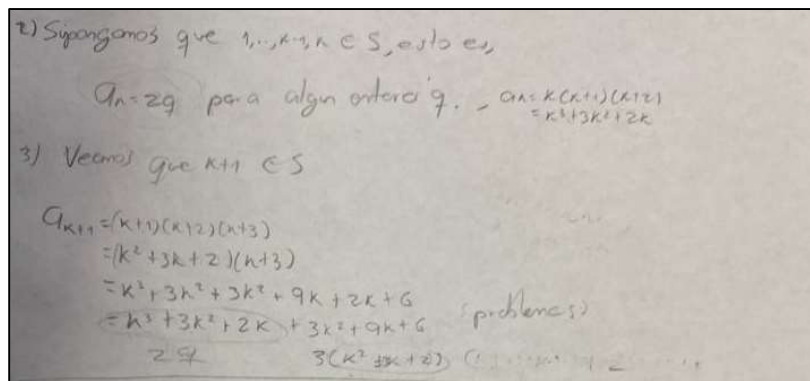 2) Supongamos que 1,..,k-1,k ∈ S, esto es,
a_k=2q para algun entero q. , a_k=k(k+1)(k+2)
=k³+3k²+2k
3) Veamos que k+1 ∈ S
a_{k+1}=(k+1)(k+2)(k+3)
=(k²+3k+2)(k+3)
=k³+3k²+3k²+9k+2k+6
=k³+3k²+2k+3k²+9k+6 (problemas)
2q 3(k²+3k+2)